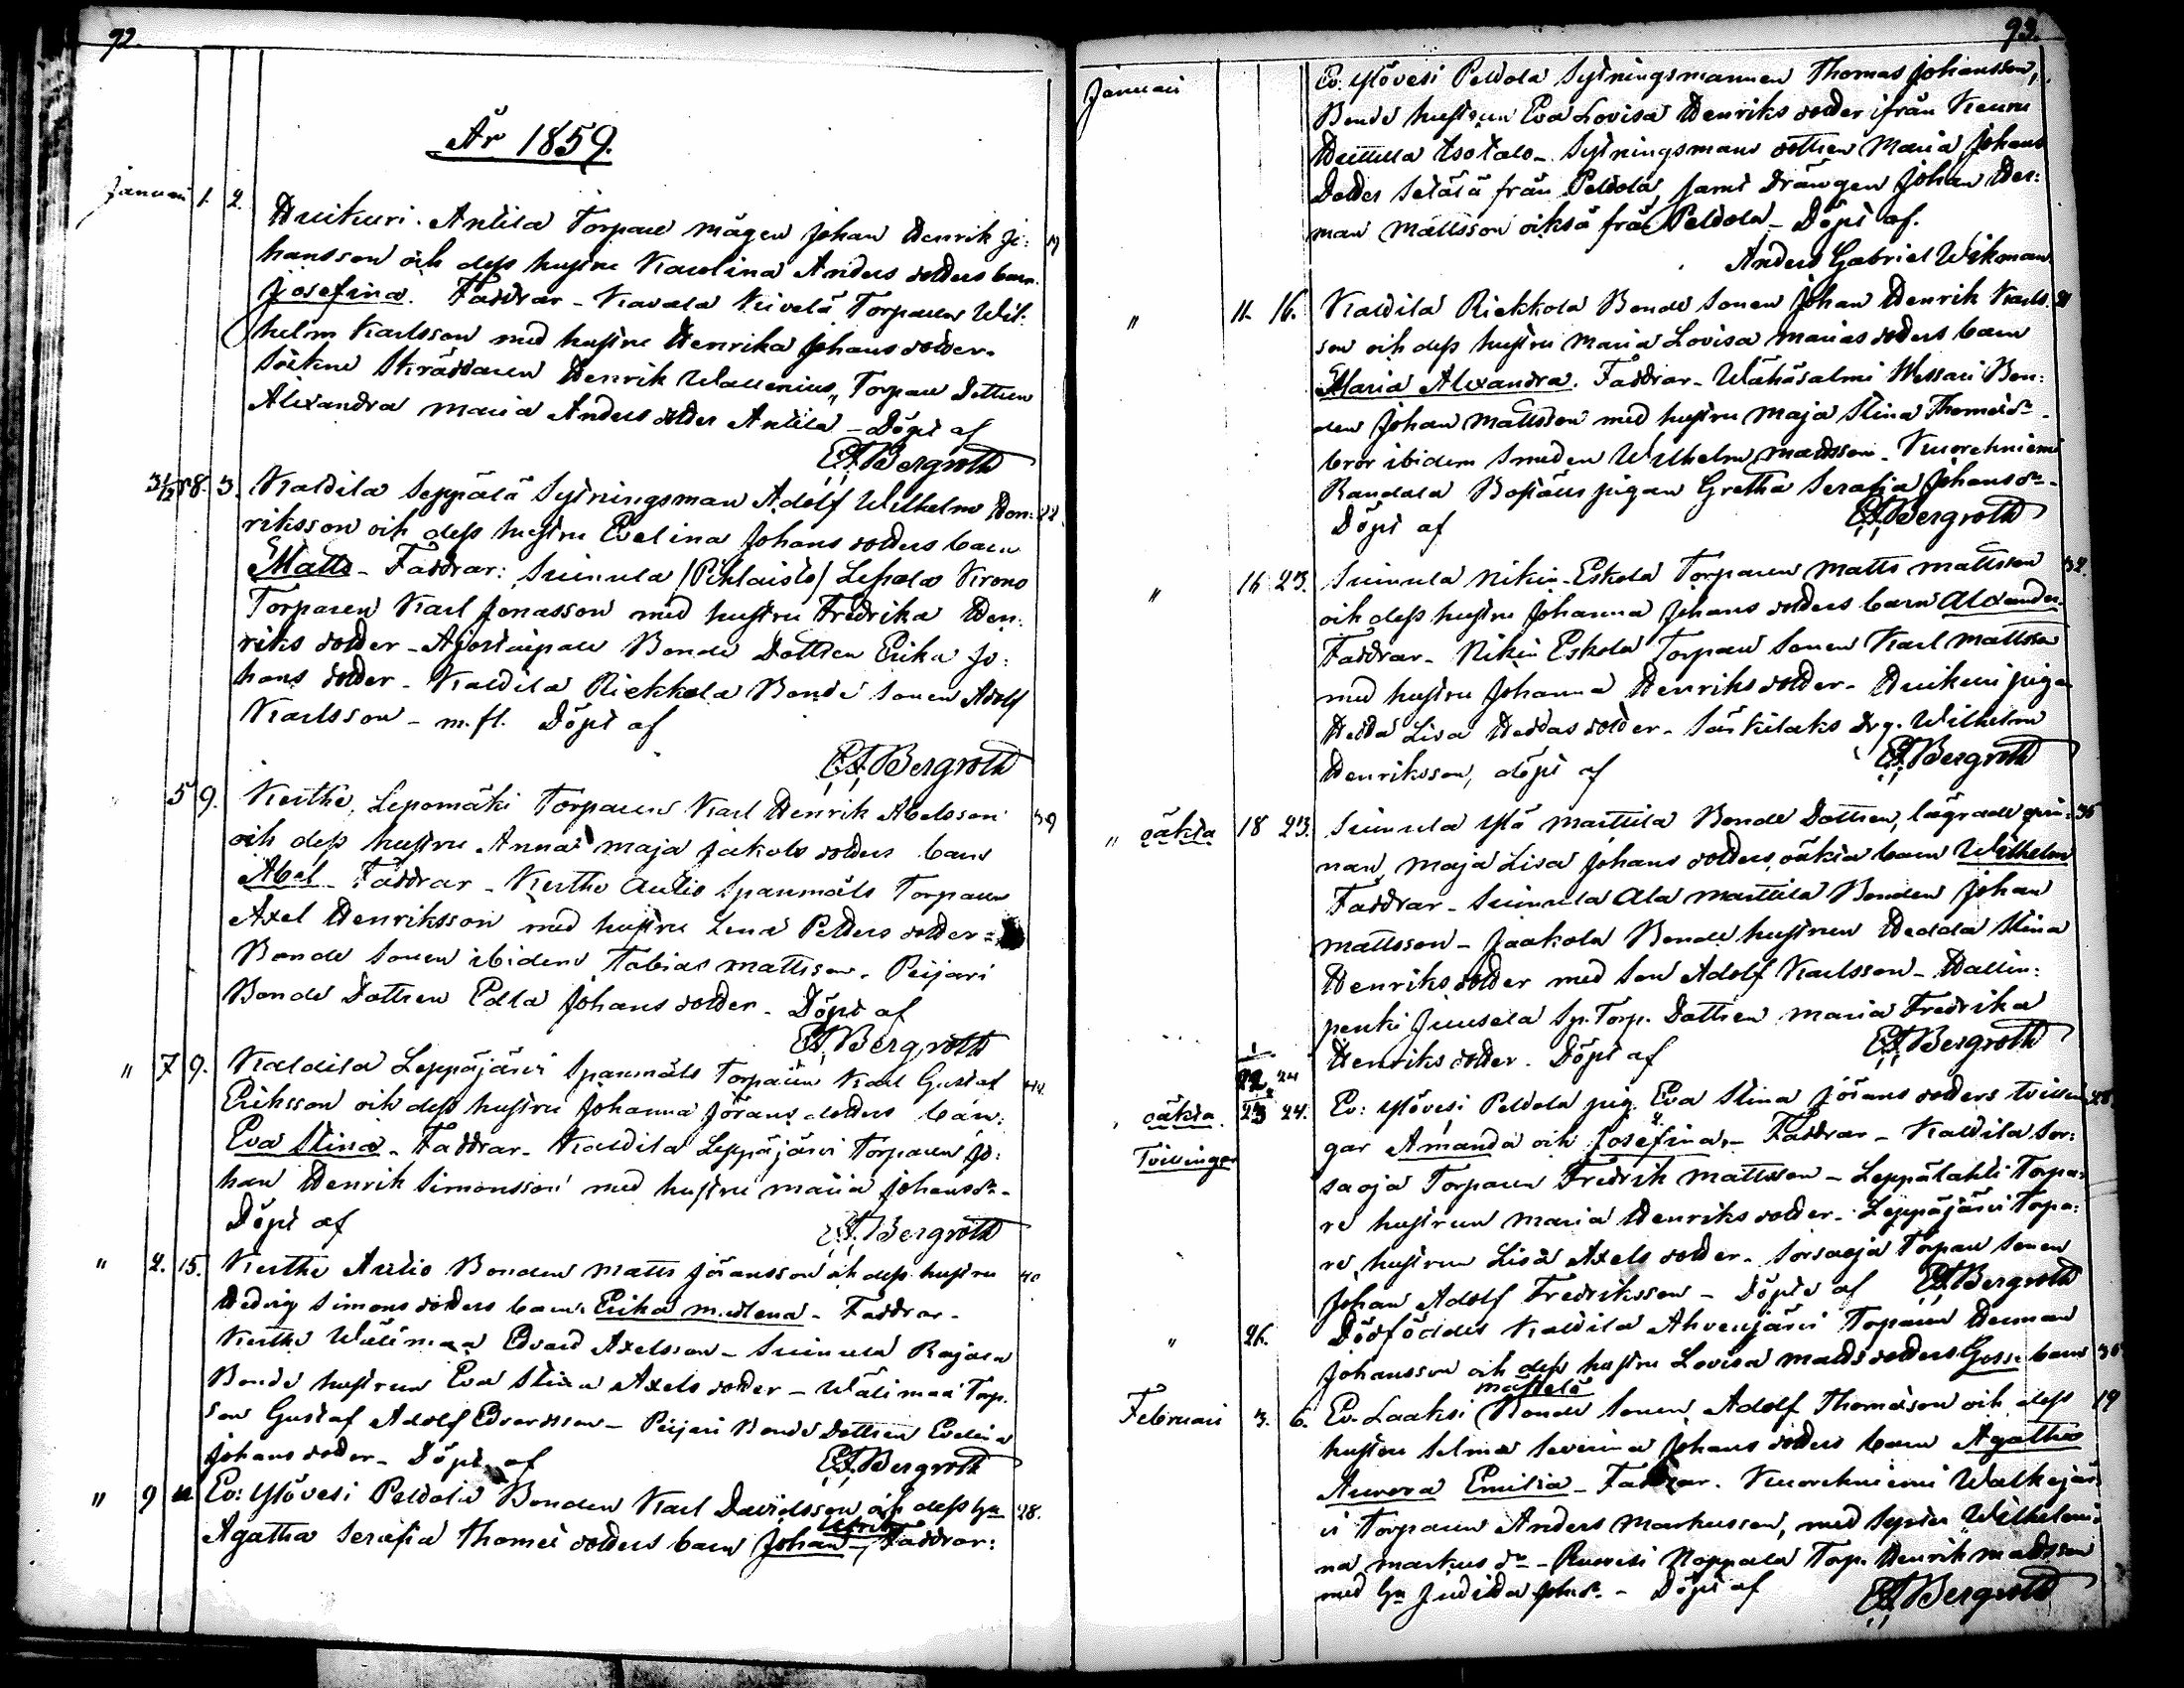 92.
År 1859.
Januari 1. 2. Huikuri Anttila Torpare mågen Johan Henrik Jo:
hansson och dess hustru Karolina Anders dotters barn
Josefina. Faddrar - Kavala Kivelä Torparen Wil:
helm Karlsson med hustru Henrika Johans dotter.
Sockne Skräddaren Henrik Wallenius, Torpare Dottren
Alexandra Maria Anders dotter Anttila - Döpt af
Bergroth
31/12 58. 3. Kaldila Seppälä Sytningsman Adolf Wilhelm Hen: 22.
riksson och dess hustru Evelina Johans dotters barn
Matts - Faddrar: Suinula (Pihlaisto) Lepola Krono
Torparen Karl Jonasson med hustru Fredrika Hen:
riks dotter - Ajostaipale Bonde Dottren Erika Jo:
hans dotter - Kaldila Riekkola Bonde Sonen Adolf
Karlsson - m. fl. Döpt af
Bergroth
5 9. Kerthe, Lepomäki Torparen Karl Henrik Abelsson 39
och dess hustru Anna Maja Jakobs dotters barn
Abel - Faddrar - Kerthe Aulio Spanmåls Torparen
Axel Henriksson med hustru Lena Petters dotter =
Bonde Sonen ibidem Tobias Mattsson. Peijari
Bonde Dottren Edla Johans dotter - Döpt af
Bergroth
" 7 9. Kaldila Leppäjärvi Spanmåls Torparen Karl Gustaf 44.
Eriksson och dess hustru Johanna Jörans dotters barn:
Eva Stina - Faddrar - Kaldila Leppäjärvi Torparen Jo:
han Henrik Simonsson med hustru Maria Johansdr -
Döpt af
Bergroth
" 2. 15. Kerthe Aulio Bonden Matts Jöransson och dess hustru 40
Hedvig Simons dotters barn Erika Madlena - Faddrar -
Kerthe Wälimaa Edvard Axelsson - Suinula Rajala
Bonde hustrun Eva Stina Axels dotter - Wälimaa Torp.
son Gustaf Adolf Edvardsson - Peijari Bonde Dottren Evelina
Johans dotter - Döpt af
Bergroth
" 9 Ev: Ylövesi Peldola Bonden Karl Davidsson och dess hu 28.
Agatha Serafia Thomæ dotters barn Johan Ulrik - Faddrar:
93.
Januari Ev: Ylövesi Peldola Sytningsmannen Thomas Johansson,
Bonde hustrun Eva Lovisa Henriks dotter ifrån Keuru
Huttula Isotalo - Sytningsmans dottren Maria Johans
Dotter Setälä från Peldola samt Drängen Johan Her:
man Mattsson också från Peldola - Döpt af.
Anders Gabriel Wikman
" 11. 16. Kaldila Riekkola Bonde Sonen Johan Henrik Karls
son och dess hustru Maria Lovisa Marias dotters barn
Maria Alexandra. Faddrar - Wähäsalmi Messari Bon:
den Johan Mattsson med hustru Maja Stina Thomædr -
bror ibidem Smeden Wilhelm Mattsson - Kuorehniemi
Randala Boställs pigan Gretha Serafia Johansdr -
Döpt af Bergroth
" 16 23. Suinula Nikin-Eskola Torparen Matts Mattsson 32.
och dess hustru Johanna Johans dotters barn Alexander.
Faddrar - Nikin Eskola Torpare Sonen Karl Mattsson
med hustru Johanna Henriks dotter - Huikuri pigan
Hedda Lisa Heddas dotter - Särkilaks Drg. Wilhelm
Henriksson, döpt af Bergroth
" oäkta 18 23. Suinula Ylä Marttila Bonde Dottren, lägrade qvin: 36
nan, Maja Lisa Johans dotters, oäkta barn Wilhelm
Faddrar - Suinula Ala Marttila Bonden Johan
Mattsson - Jaakola Bonde hustrun Hedda Stina
Henriks dotter med Son Adolf Karlsson - Hallin:
penki Juusela Sp. Torp. Dottren Maria Fredrika
Henriks dotter. Döpt af Bergroth
1 22 24
oäkta. 2 23 24. Ev: Ylövesi Peldola pig. Eva Stina Jörans dotters tvillin 28
Tvillingar gar Amanda och 2. Josefina, - Faddrar - Kaldila Sor:
saoja Torparen Fredrik Mattsson - Leppälahti Torpa:
re hustrun Maria Henriks dotter - Leppäjärvi Torpa:
re hustrun Lisa Axels dotter - Sorsaoja Torpare Sonen
Johan Adolf Fredriksson - Döpte af Bergroth
" 26. Dödföddes Kaldila Ahvenjärvi Torparen Herman
Johansson och dess hustru Lovisa Matts dotters Gosse barn 30
Februari 3. 6. Ev. Laaksi Mattelä Bonde Sonen Adolf Thomasson och dess 19
hustru Selma Severina Johans dotters barn Agatha
Aurora Emilia - Faddrar. Kuorehniemi Walkejär
vi Torparen Anders Markusson, med Syster Wilhelmi:
na Markus dr - Ruovesi Noppala Torp. Henrik Mattsson
med hu Juditha Johdr - Döpt af Bergroth